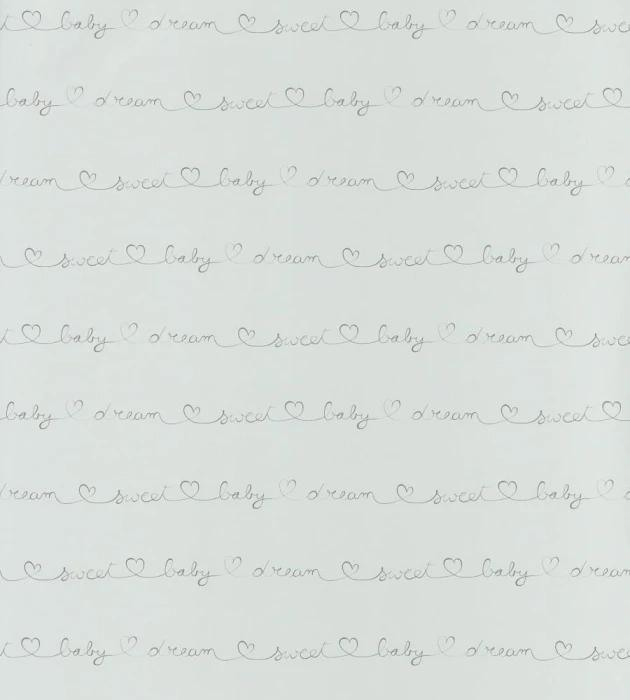 t ♡ baby ♡ dream ♡ sweet ♡ baby ♡ dream ♡ swe
baby ♡ dream ♡ sweet ♡ baby ♡ dream ♡ sweet ♡
ream ♡ sweet ♡ baby ♡ dream ♡ sweet ♡ baby ♡
♡ sweet ♡ baby ♡ dream ♡ sweet ♡ baby ♡ dream
t ♡ baby ♡ dream ♡ sweet ♡ baby ♡ dream ♡ swe
baby ♡ dream ♡ sweet ♡ baby ♡ dream ♡ sweet ♡
ream ♡ sweet ♡ baby ♡ dream ♡ sweet ♡ baby ♡
♡ sweet ♡ baby ♡ dream ♡ sweet ♡ baby ♡ dream
t ♡ baby ♡ dream ♡ sweet ♡ baby ♡ dream ♡ swe